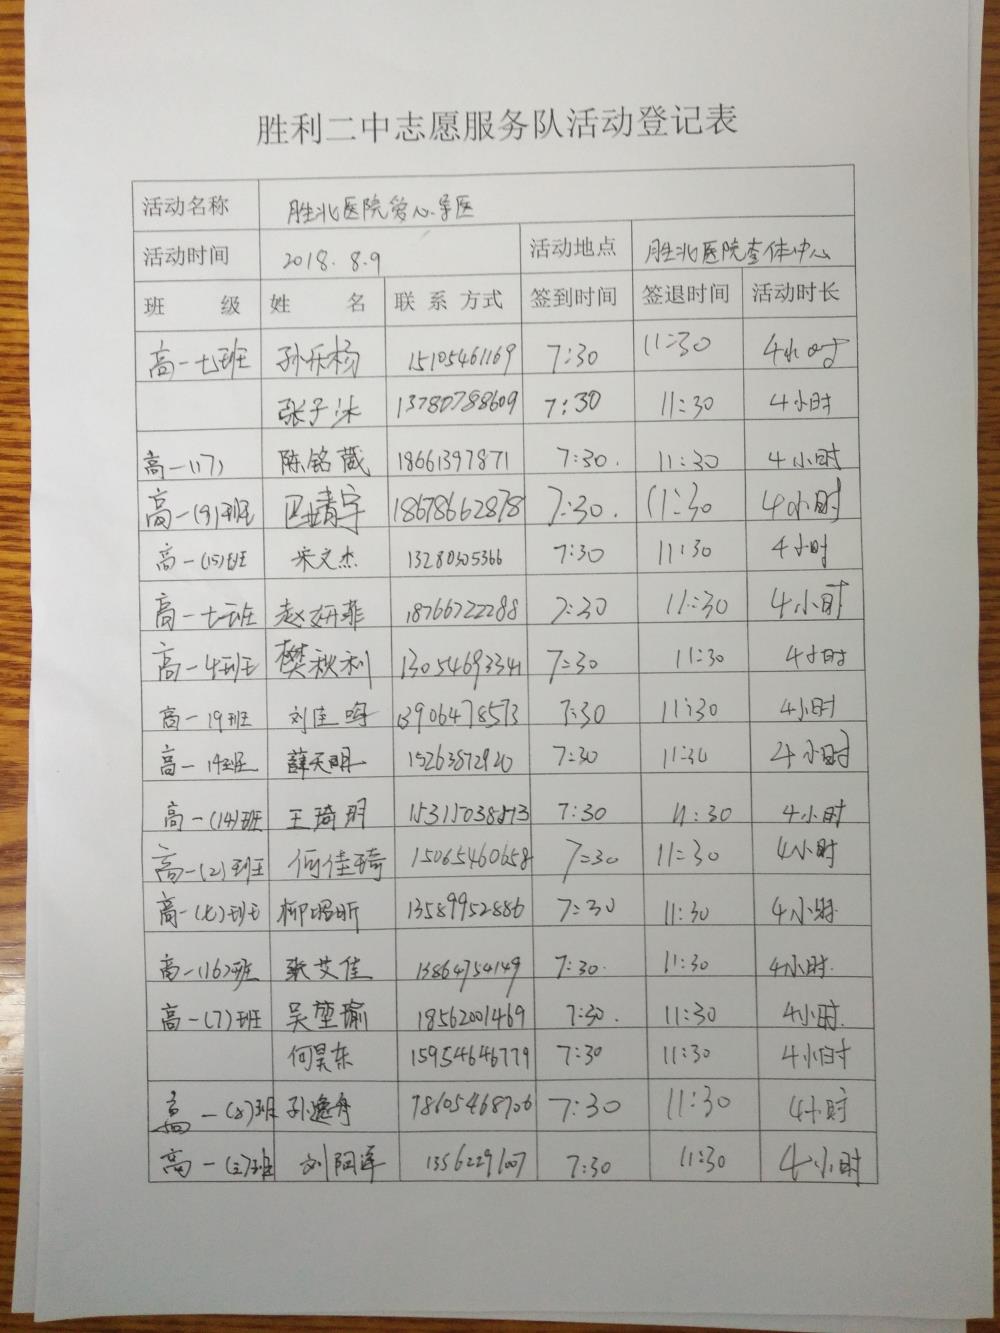 胜利二中志愿服务队活动登记表
活动名称 胜北医院爱心导医
活动时间 2018.8.9 活动地点 胜北医院查体中心
班 级 姓 名 联系方式 签到时间 签退时间 活动时长
高一七班 孙乐杨 15105461169 7:30 11:30 4小时
张子沐 13780788609 7:30 11:30 4小时
高一(17) 陈铭葳 18661397871 7:30. 11:30 4小时
高一(9)班 巴婧宇 18678662878 7:30. 11:30 4小时
高一(15)班 宋文杰 13280305366 7:30 11:30 4小时
高一十一班 赵妍菲 18766722288 7:30 11:30 4小时
高一4班 樊秋利 13054693341 7:30 11:30 4小时
高一19班 刘佳鸣 13906478573 7:30 11:30 4小时
高一19班 薛天明 15263872920 7:30 11:30 4小时
高一(14)班 王琦玥 153115038513 7:30 11:30 4小时
高一(2)班 何佳琦 15065460658 7:30 11:30 4小时
高一(七)班 柳昭昕 13589952886 7:30 11:30 4小时
高一(16)班 张艾佳 13864754149 7:30. 11:30 4小时.
高一(7)班 吴堃瑜 18562001469 7:30. 11:30 4小时.
何昊东 15954646779 7:30 11:30 4小时
高一(8)班 孙逸舟 78605468706 7:30 11:30 4小时
高一(三)班 刘 13562291007 7:30 11:30 4小时